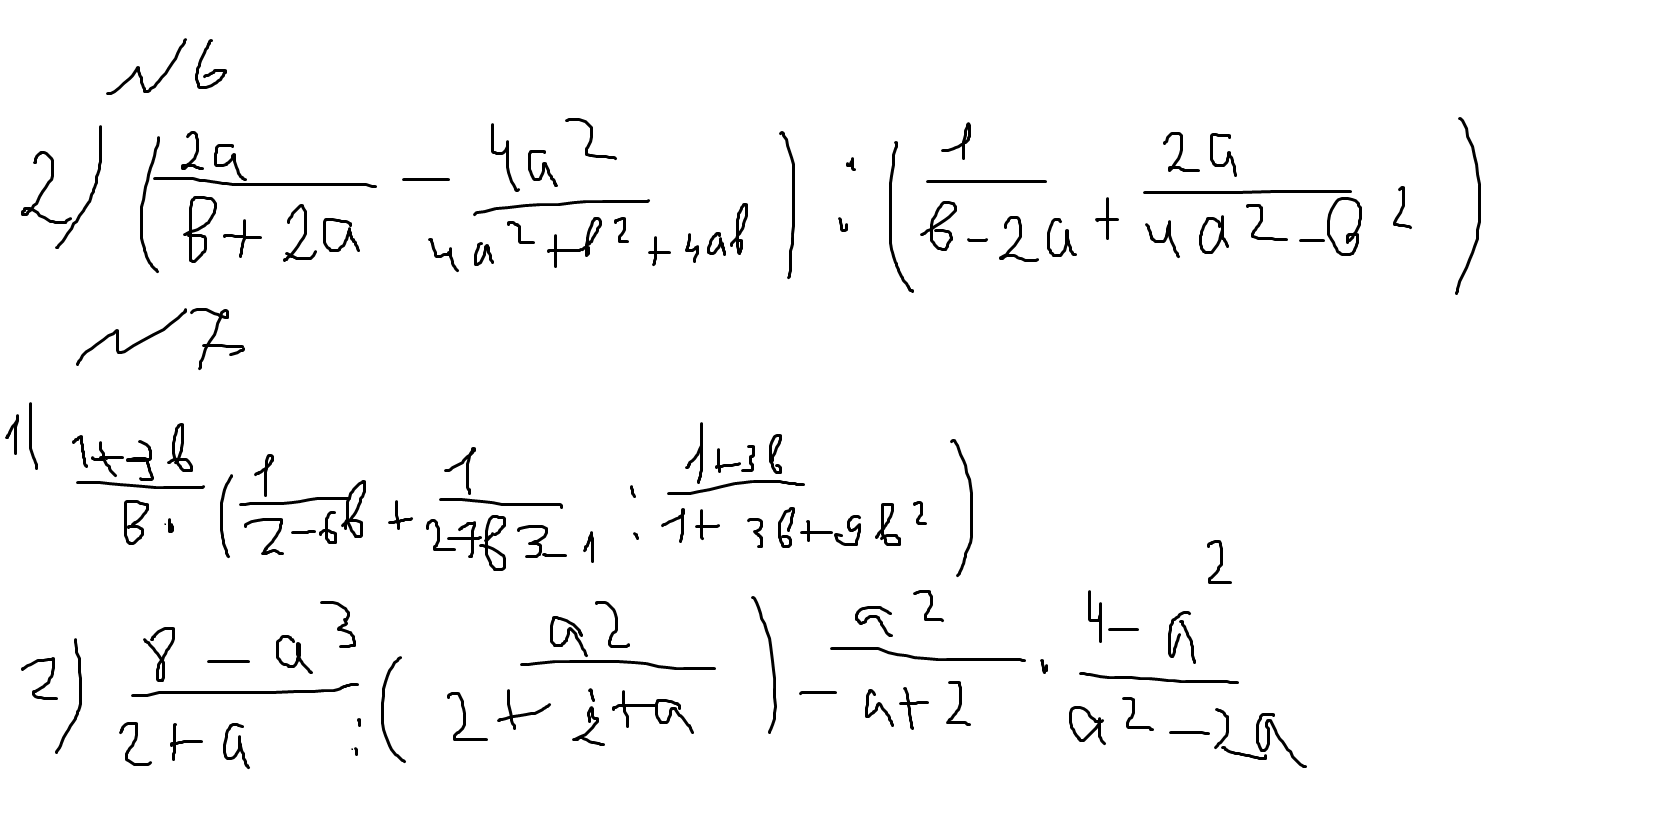 №6
2) (2a/(в+2a) - 4a²/(4a²+в²+4aв)) : (1/(в-2a) + 2a/(4a²-в²))
№7
1) (1+3в)/в · (1/(2-6в) + 1/(27в3-1) : (1+3в)/(1+3в+9в²))
2) (8-a³)/(2+a) : (a²/(2+2+a)) - a²/(a+2) · (4-a²)/(a²-2a)